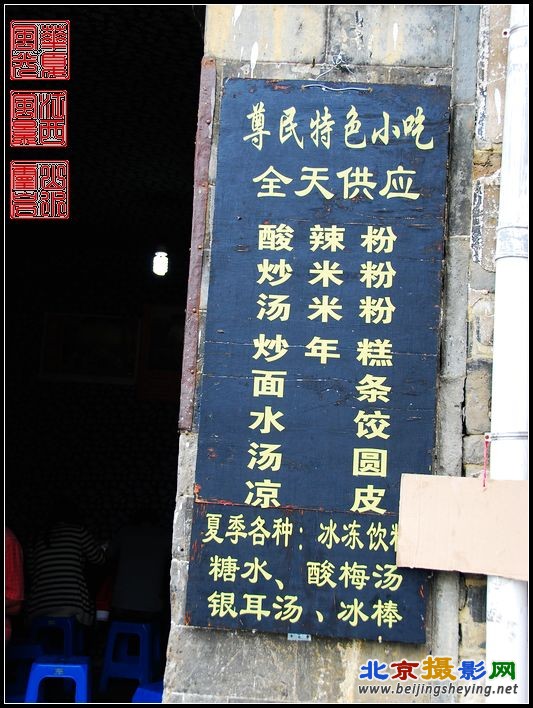 尊民特色小吃
全天供应
酸辣粉
炒米粉
汤米粉
炒年糕
面条
水饺
汤圆
凉皮
夏季各种：冰冻饮料
糖水、酸梅汤
银耳汤、冰棒
北京摄影网
www.beijingsheying.net